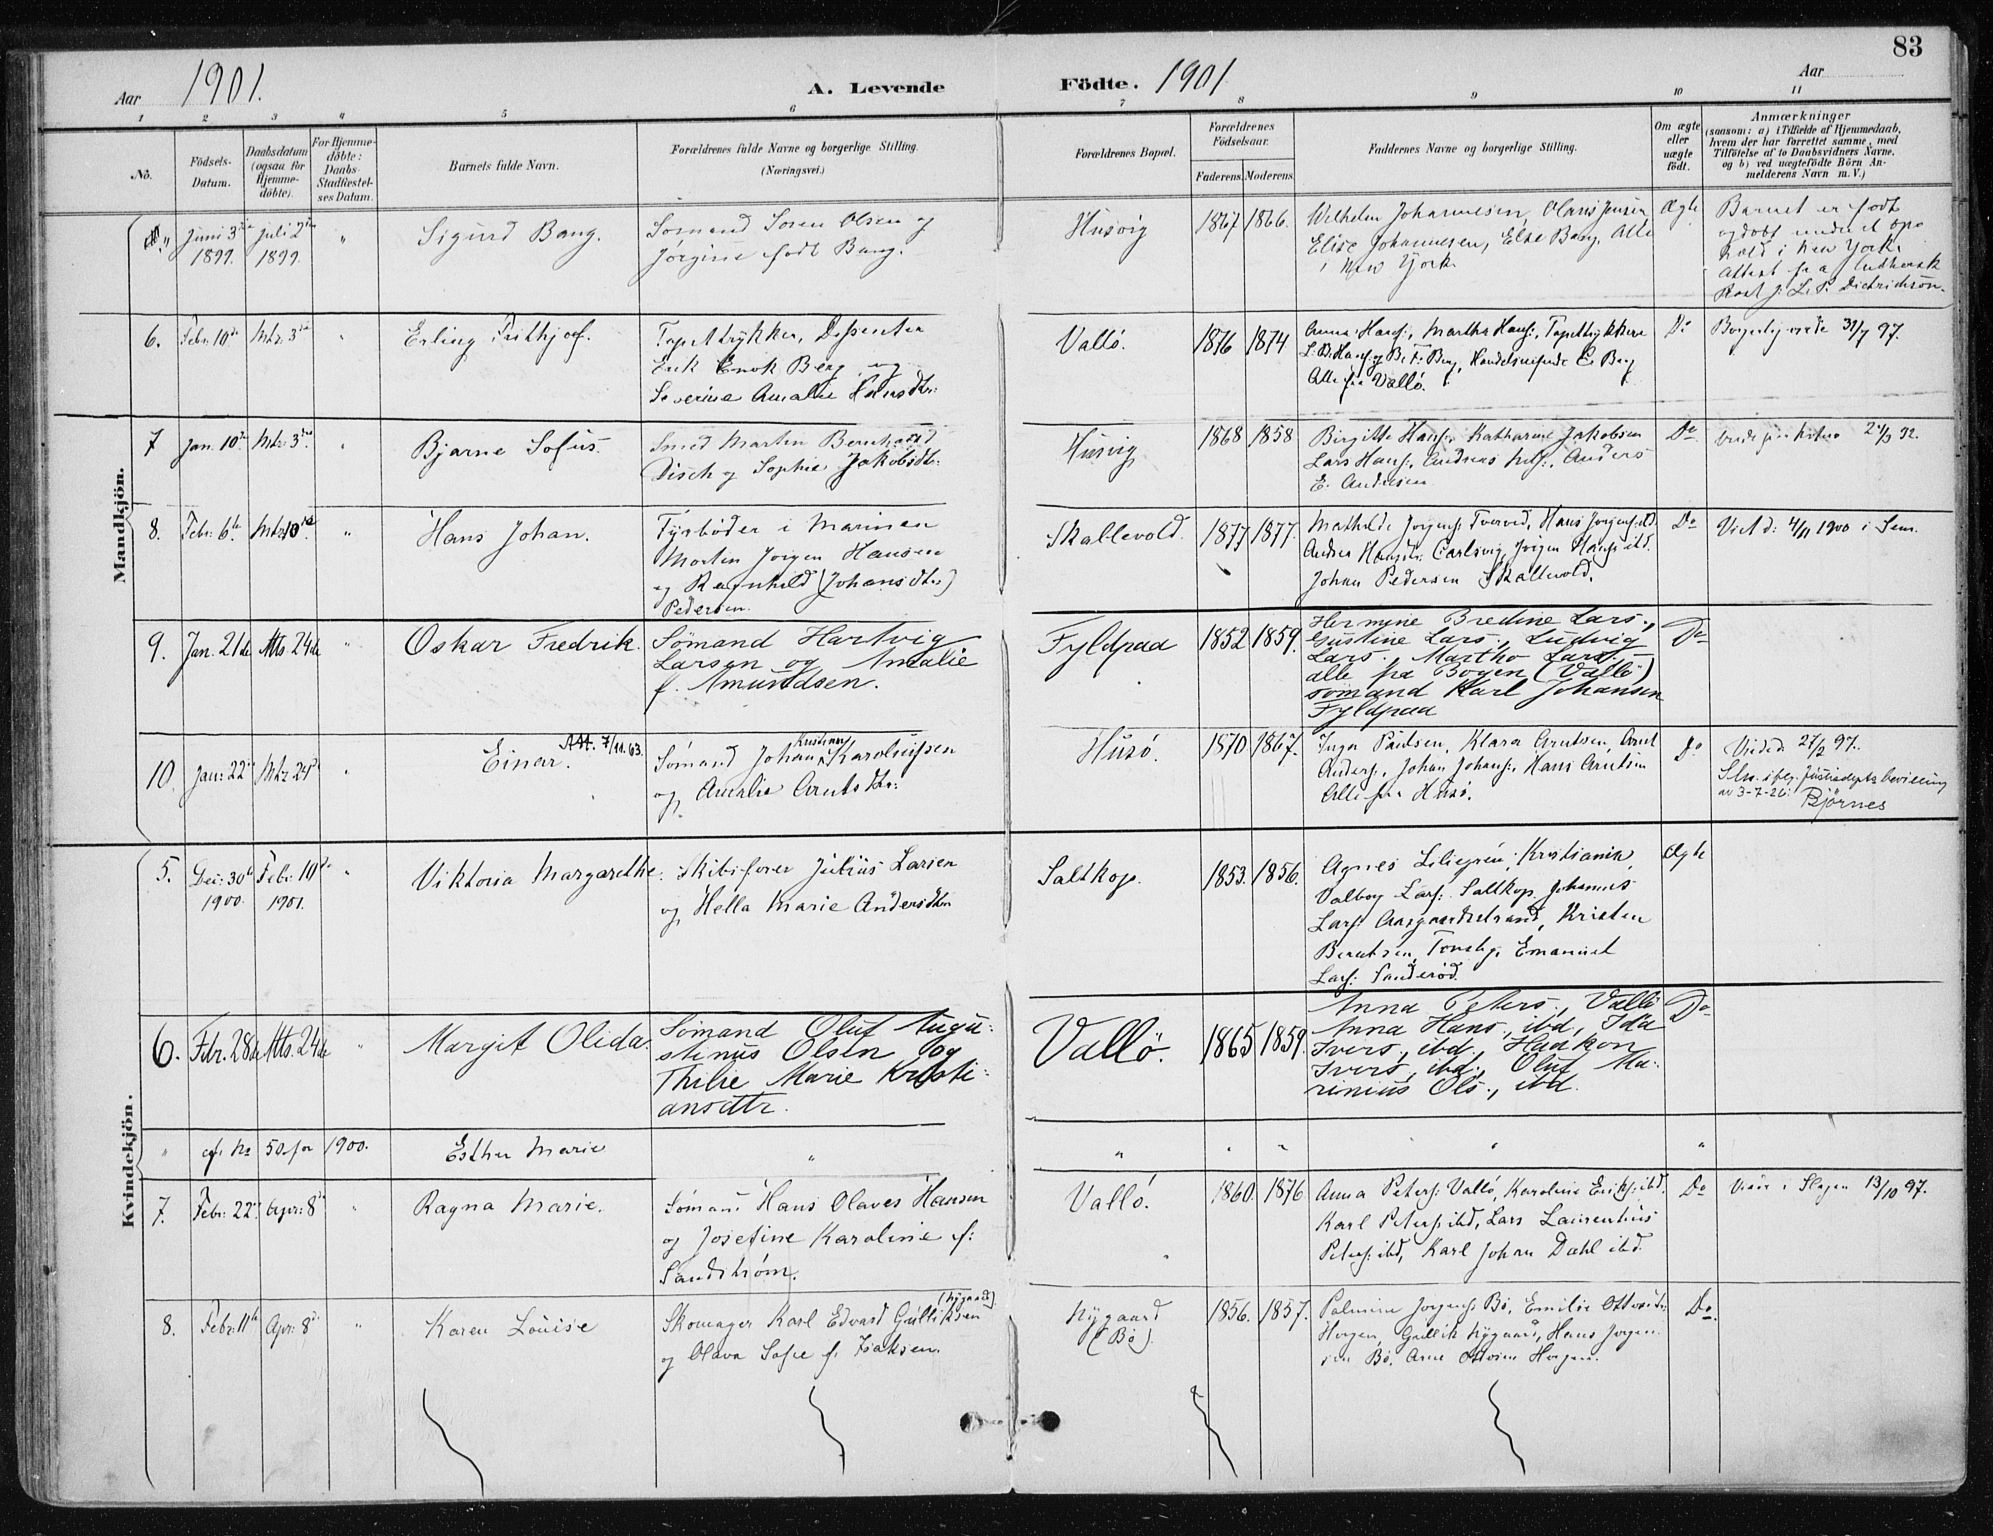 83
Aar 1901. A. Levende Födte. 1901 Aar
1 2 3 4 5 6 7 8 9 10 11
No.
Födsels-
Datum.
Daabsdatum
(ogsaa for
Hjemme-
döbte).
For Hjemme-
döbte:
Daabs-
Stadfæstel-
ses Datum.
Barnets fulde Navn.
Forældrenes fulde Navne og borgerlige Stilling.
(Næringsvei.)
Forældrenes Bopæl.
Forældrenes
Födselsaar.
Faderens. Moderens.
Faddernes Navne og borgerlige Stilling.
Om ægte
eller
uægte
födt.
Anmærkninger
(saasom: a) i Tilfælde af Hjemmedaab,
hvem der har forrettet samme, med
Tilföielse af to Daabsvidners Navne,
og b) ved uægtefödte Börn An-
melderens Navn m. V.)
Mandkjön.
Juni 3
1899.
Juli 2
1899.
"
Sigurd Bang.
Sømand Soren Olsen og
Jørgine født Bang.
Husvig
1867 1866.
Wilhelm Johannesen, Olaus Jensen
Elise Johannesen, Else Bang. Alle
i New York.
Ægte
Barnet er født
og døbt under et op-
hold i New York.
Attest fra Luthersk
Præst J. L. P. Dietrichson.
6. Febr. 10de Mtz. 3die "
Erling Frithjof.
Tapettrykker, Dissenter
Erik Enok Berg og
Severine Amalie Hansdtr:
Vallö.
1876 1874
Anna Hans:, Martha Hans:, Tapettrykkere
L. B. Hans: og B. F. Berg, E. Berg
Alle fra Vallö.
Do
Borgerlig viede 31/7 97.
7 Jan. 10de Mtz. 3die "
Bjarne Sofus.
Smed Martin Bernhard
Disch og Sophie Jakobsdtr:
Husvig
1868 1858
Birgitte Hans:, Katharine Jakobsen
Lars Hans:, Andreas Anders
E. Andersen
Do
92.
8. Febr: 6te Mtz. 10de "
Hans Johan.
Fyrbøder i Marinen
Morten Jörgen Hansen
og Ragnhild (Johansdtr)
Pedersen.
Skallevold.
1877 1877.
Mathilde Jörgens: Tverved, Hans Jörgens: ibd.
Andrea Hansdtr. Carlsvig, Jörgen Hans: ibd.
Johan Pedersen Skallevold.
Do
Viet d: 4/11 1900 i Sem.
9. Jan. 21de Mts. 24de "
Oskar Fredrik.
Sømand Hartvig
Larsen og Amalie
f. Amundsen.
Fyldpaa
1852 1859.
Hermine Bredine Lars.,
Gustine Lars., Ludvig
Lars., Martho Lars.
alle pa Bogen (Vallö)
sömand Karl Johansen
Fyldpaa
Do
10. Jan: 22 Mtz. 24 "
Einar. Att. 7/11.63.
Sømand Johan Kristian Karoliussen
og Amalie Arntsdtr:
Husö.
1870 1867.
Inga Paulsen, Klara Arntsen, Arnt
Anders:, Johan Johans:, Hans Arntsen
Alle fra Husö.
Do
Viede d. 27/2 97.
Sln. iflg. Justisdepts bevilling
av 3-7-26: Björnes
Kvindekjön.
5. Dec: 30te
1900.
Febr. 10de
1901.
"
Viktoria Margarethe.
Skibsfører Julius Larsen
og Hella Marie Andersdtr
Saltkop.
1853. 1856.
Agnes Liliegren, Kristiania,
Valborg Lars: Saltkop, Johannes
Lars: Aasgaardstrand, Kristen
Berntsen, Tønsbg, Emanuel
Lars: Sanderød.
Ægte
6. Febr. 28de Mts. 24de "
Margit Olida.
Sømand Oluf Augu-
stinus Olsen og
Thilie Marie Kristi-
ansdtr.
Vallö.
1865 1859.
Anna Peters., Vallö
Anna Hans., ibd., Ida
Ivers., ibd., Haakon
Ivers., ibd., Oluf Ma-
rinius Ols., ibd.
Do
" cfr. No 50 for 1900.
Esther Marie " " " " " "
7. Febr: 22 Apr: 8 "
Ragna Marie.
Sömand Hans Olaves Hansen
og Josefine Karoline f:
Sandström.
Vallö.
1860. 1876
Anna Peters: Vallö, Karoline Eriks: ibd.
Karl Peters: ibd, Lars Laurentius
Peters: ibd, Karl Johan Dahl ibd.
Do
Viede i Slagen 13/10 97.
8. Febr: 11te Apr: 8 "
Karen Louise
Skomager Karl Edvard Gulliksen (Nygaard)
og Olava Sofie f. Isaksen.
Nygaard
(Bö).
1856. 1857.
Palmine Jörgens: Bö, Emilie Ottersdtr:
Horgen, Gullik Nygaard, Hans Jörgen-
sen Bö, Arne Horgen.
Do.